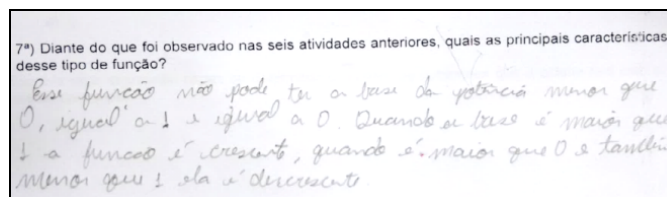 7ª) Diante do que foi observado nas seis atividades anteriores, quais as principais características
desse tipo de função?
Esse função não pode ter a base da potência menor que
0, igual a 1 e igual a 0. Quando a base é maior que
1 a funcao é crescente, quando é maior que 0 e também
menor que 1 ela é descrescente